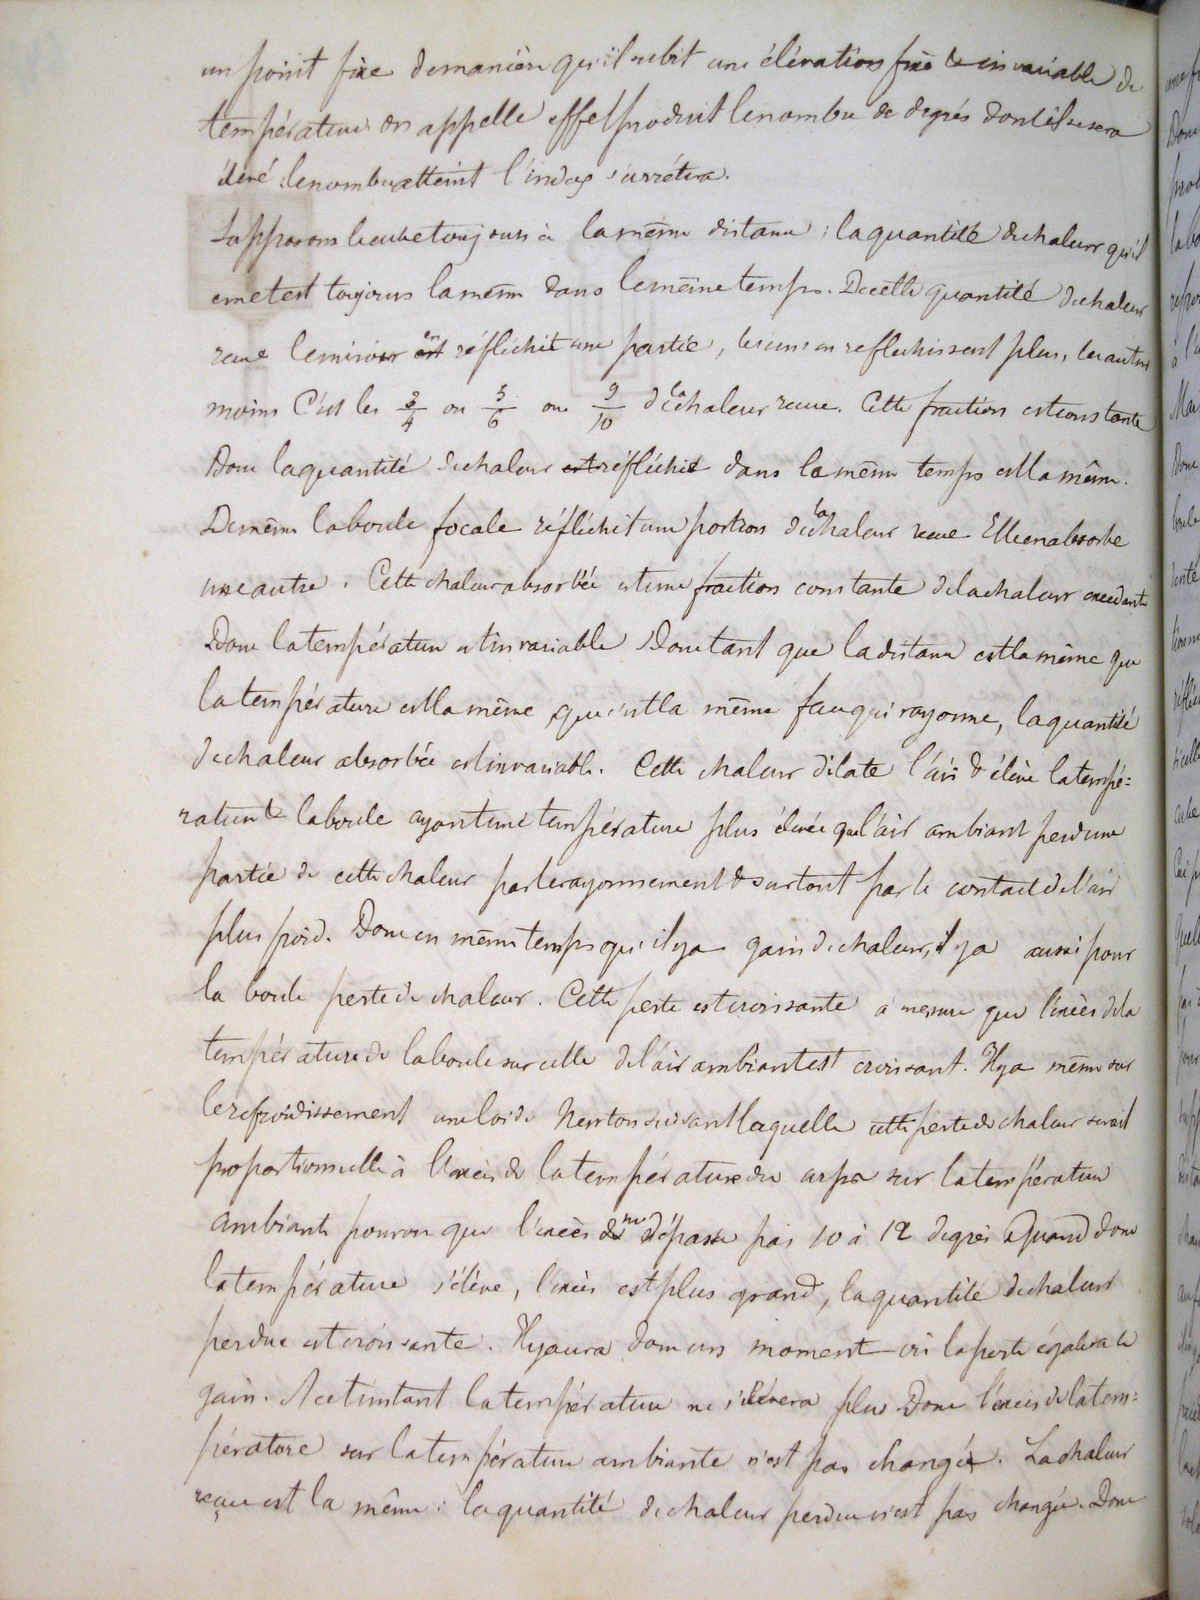 un point fixe de manière qu'il subit une élévation fixe & invariable de
température on appelle effet produit le nombre de degrés dont il se sera
élevé : le nombre atteint l'index s'arrêtera.
Supposons le cube toujours à la même distance : la quantité de chaleur qu'il
emet est toujours la même dans le même temps. De cette quantité de chaleur
reçue le miroir en réfléchit une partie, les uns en reflechissent plus, les autres
moins C'est les 3/4 ou 5/6 ou 9/10 de la chaleur reçue. Cette fraction est constante
Donc la quantité de chaleur réfléchie dans le même temps est la même.
De même la boule focale réfléchit une portion de la chaleur reçue Elle en absorbe
une autre. Cette chaleur absorbée est une fraction constante de la chaleur
Donc la température est invariable Donc tant que la distance est la même que
la température est la même, que c'est la même face qui rayonne, la quantité
de chaleur absorbée est invariable. Cette chaleur dilate l'air & élève la tempé=
rature & la boule ayant une température plus élevée que l'air ambiant perd une
partie de cette chaleur par le rayonnement & surtout par le contact de l'air
plus froid. Donc en même temps qu'il y a gain de chaleur, il y a aussi pour
la boule perte de chaleur. Cette perte est croissante à mesure que l'excès de la
température de la boule sur celle de l'air ambiant est croissant. Il y a même sur
le refroidissement une loi de Newton suivant laquelle cette perte de chaleur serait
proportionnelle à l'excès de la température du corps sur la température
ambiante pourvu que l'excès ne dépasse pas 10 à 12 degrés Quand donc
la température s'élève, l'excès est plus grand, la quantité de chaleur
perdue est croissante. Il y aura donc un moment où la perte égalera le
gain. A cet instant la température ne s'élèvera plus Donc l'excès de la tem=
pérature sur la température ambiante n'est pas changé. La chaleur
reçue est la même : la quantité de chaleur perdue n'est pas changée. Donc